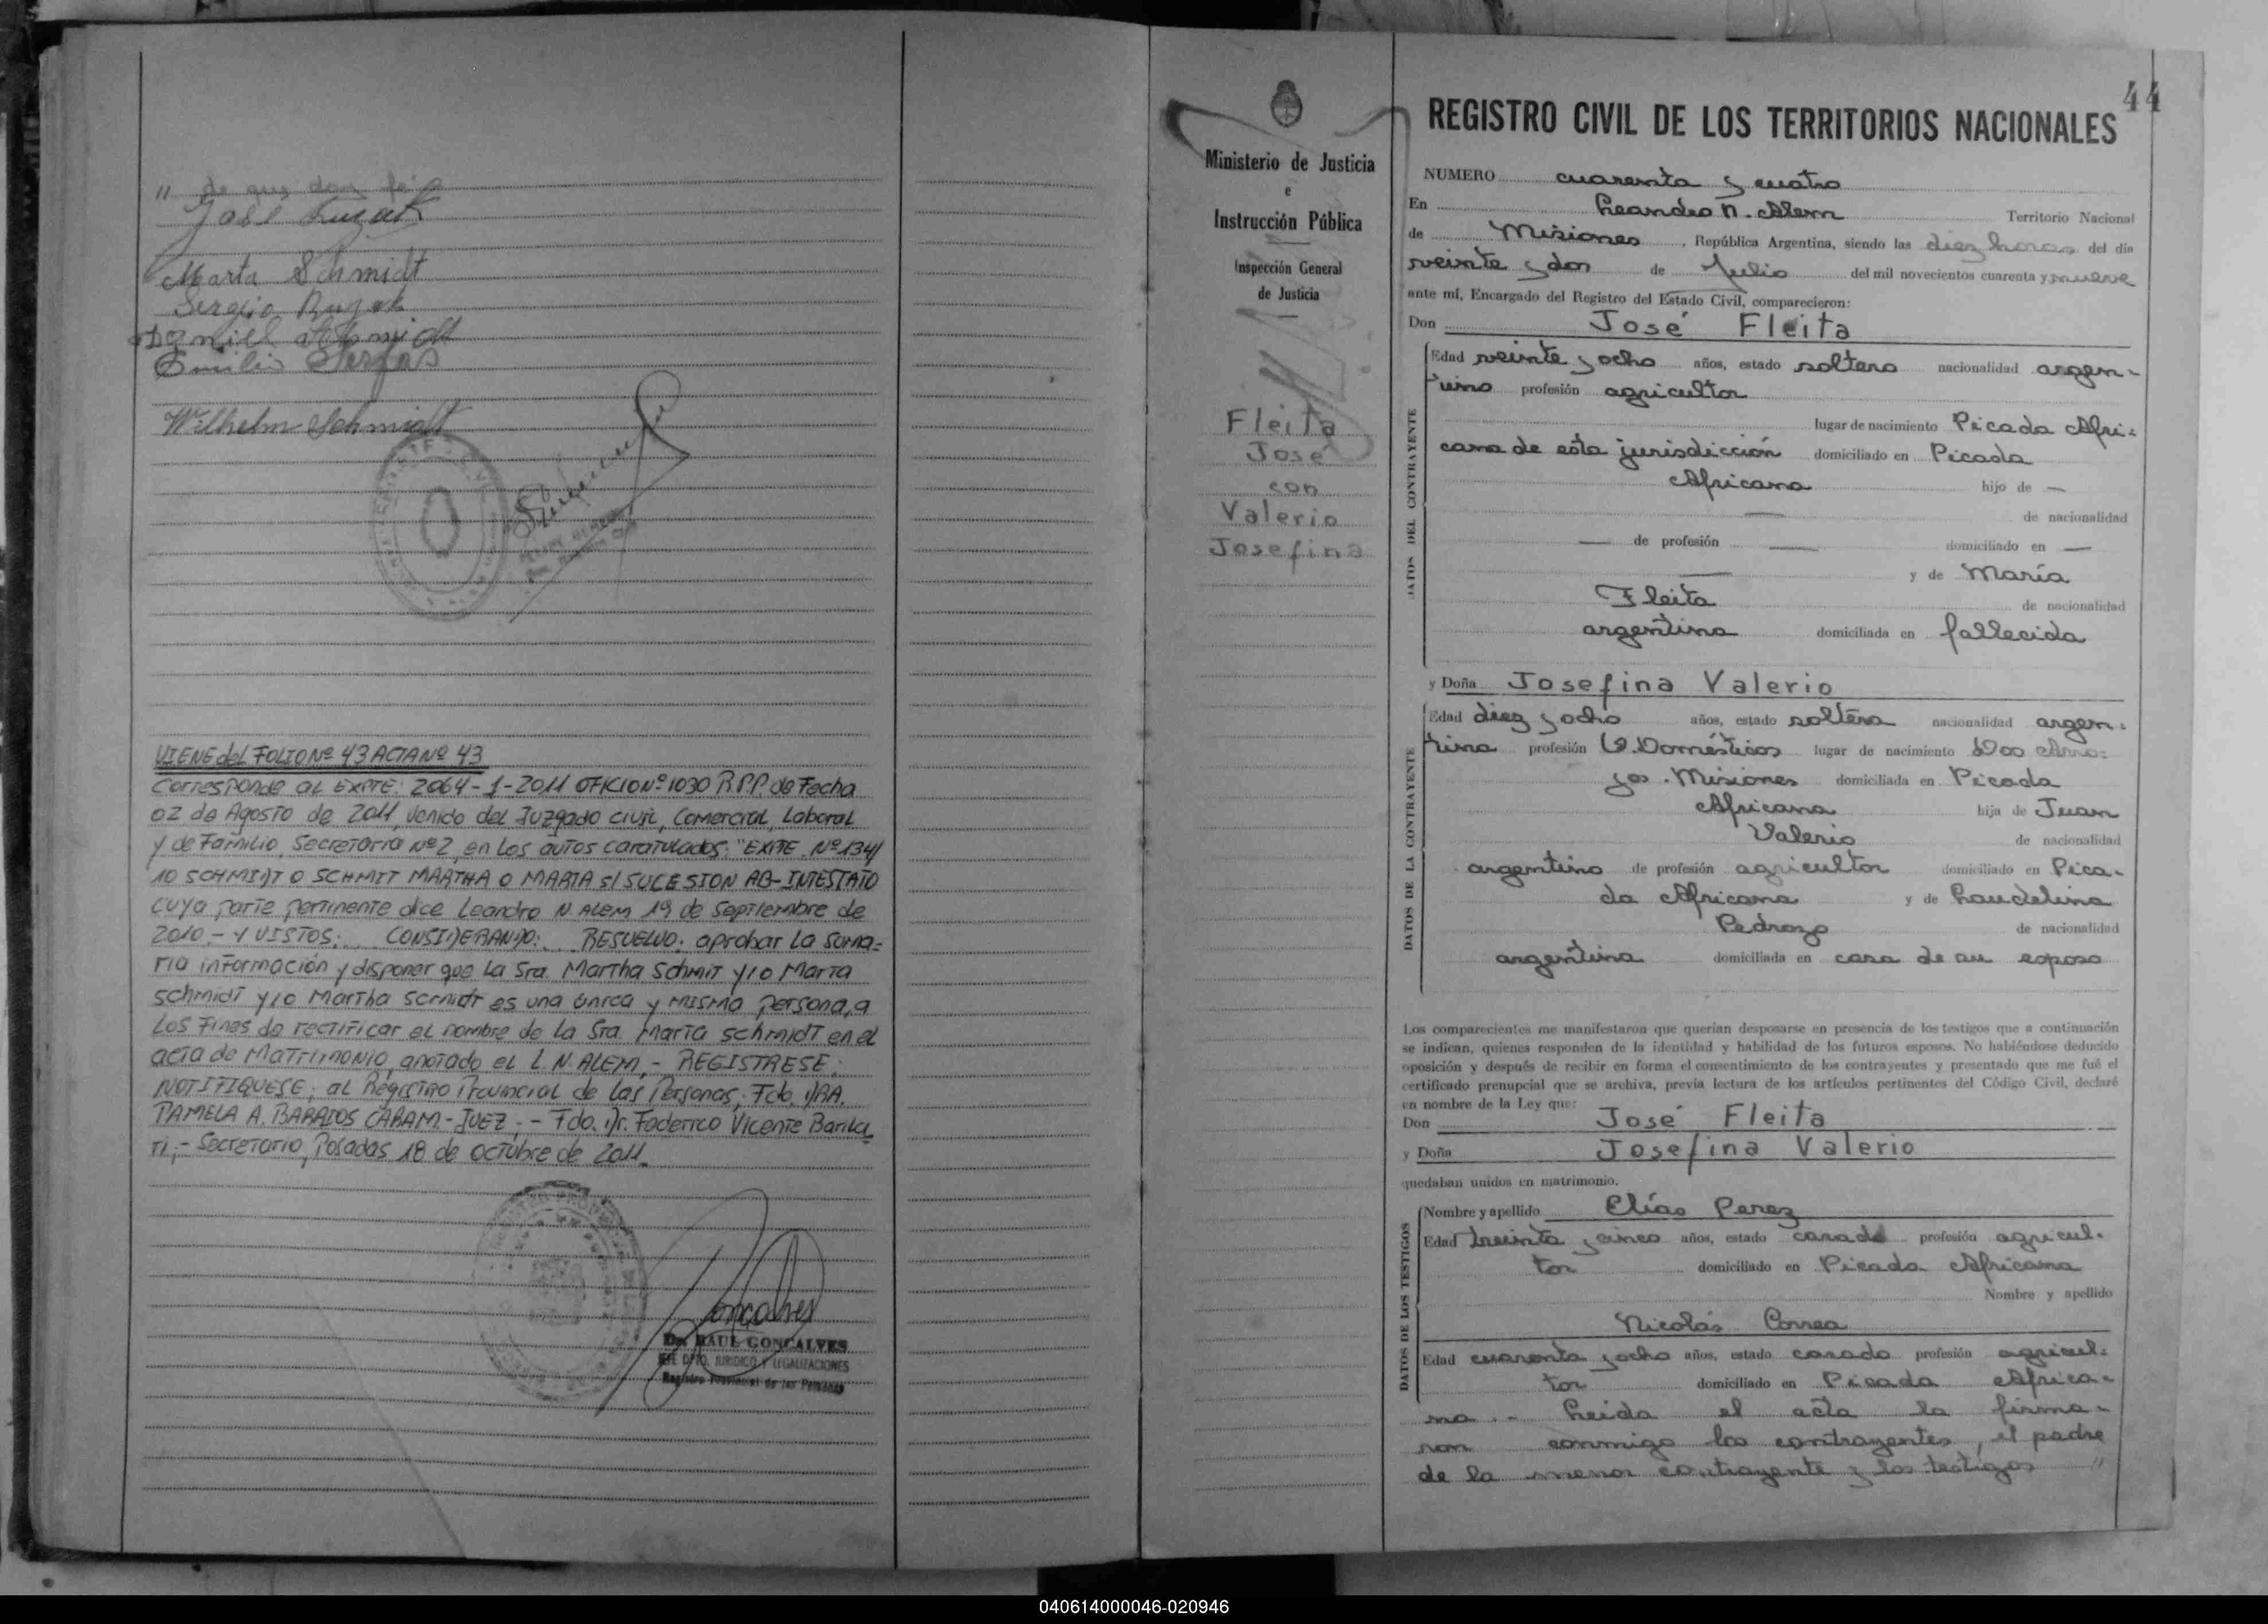 " de que doy fé
José Ruzak
Marta Schmidt
Sergio Ruzak
Emilio
Wilhelm Schmidt
VIENE del FOLIO Nº 43 ACTA Nº 43
Corresponde al EXPTE: 2064-1-2011 OFICIO Nº 1030 R.P.P. de Fecha
02 de Agosto de 2011, venido del Juzgado Civil, Comercial, Laboral
y de Familia, Secretaria Nº 2, en los autos caratulados: "EXPTE. Nº 134/
10 SCHMIDT O SCHMIT MARTHA O MARTA S/ SUCESION AB-INTESTATO
cuya parte pertinente dice Leandro N. Alem 19 de Septiembre de
2010.- Y VISTOS: CONSIDERANDO: RESUELVO: aprobar la suma=
ria información y disponer que la Sra. Martha Schmit y/o Marta
Schmidt y/o Martha Scmidt es una única y misma persona, a
los fines de rectificar el nombre de la Sra. Marta Schmidt en el
acta de Matrimonio, anotado el L.N. ALEM.- REGISTRESE.
NOTIFIQUESE; al Registro Provincial de las Personas, Fdo. DRA.
PAMELA A. BARRIOS CARAM.- JUEZ.- - Fdo. Dr. Federico Vicente
Secretario, Posadas 18 de octubre de 2011.
Goncalves
Dr. RAUL GONCALVES
JEFE DPTO. JURIDICO Y LEGALIZACIONES
Registro Provincial de las Personas
Ministerio de Justicia
e
Instrucción Pública
Inspección General
de Justicia
Fleita
José
con
Valerio
Josefina
44
REGISTRO CIVIL DE LOS TERRITORIOS NACIONALES
NUMERO cuarenta y cuatro
En Leandro N. Alem Territorio Nacional
de Misiones, República Argentina, siendo las diez horas del día
veinte y dos de Julio del mil novecientos cuarenta y nueve
ante mí, Encargado del Registro del Estado Civil, comparecieron:
Don José Fleita
DATOS DEL CONTRAYENTE
Edad veinte y ocho años, estado soltero nacionalidad argen-
tino profesión agricultor
lugar de nacimiento Picada Afri=
cana de esta jurisdicción domiciliado en Picada
Africana hijo de —
— de nacionalidad
— de profesión — domiciliado en —
— y de María
Fleita de nacionalidad
argentina domiciliada en fallecida
y Doña Josefina Valerio
DATOS DE LA CONTRAYENTE
Edad diez y ocho años, estado soltera nacionalidad argen-
tina profesión Q. Domésticos lugar de nacimiento Dos Arro=
yos. Misiones domiciliada en Picada
Africana hija de Juan
Valerio de nacionalidad
argentino de profesión agricultor domiciliado en Pica-
da Africana y de Laudelina
Pedrozo de nacionalidad
argentina domiciliada en casa de su esposo
Los comparecientes me manifestaron que querían desposarse en presencia de los testigos que a continuación
se indican, quienes responden de la identidad y habilidad de los futuros esposos. No habiéndose deducido
oposición y después de recibir en forma el consentimiento de los contrayentes y presentado que me fué el
certificado prenupcial que se archiva, previa lectura de los artículos pertinentes del Código Civil, declaré
en nombre de la Ley que:
Don José Fleita
y Doña Josefina Valerio
quedaban unidos en matrimonio.
DATOS DE LOS TESTIGOS
Nombre y apellido Elías Perez
Edad treinta y cinco años, estado casado profesión agricul-
tor domiciliado en Picada Africana
Nombre y apellido
Nicolás Correa
Edad cuarenta y ocho años, estado casado profesión agricul-
tor domiciliado en Picada Africa-
na.- Leida el acta la firma-
ron conmigo los contrayentes, el padre
de la menor contrayente y los testigos "
040614000046-020946